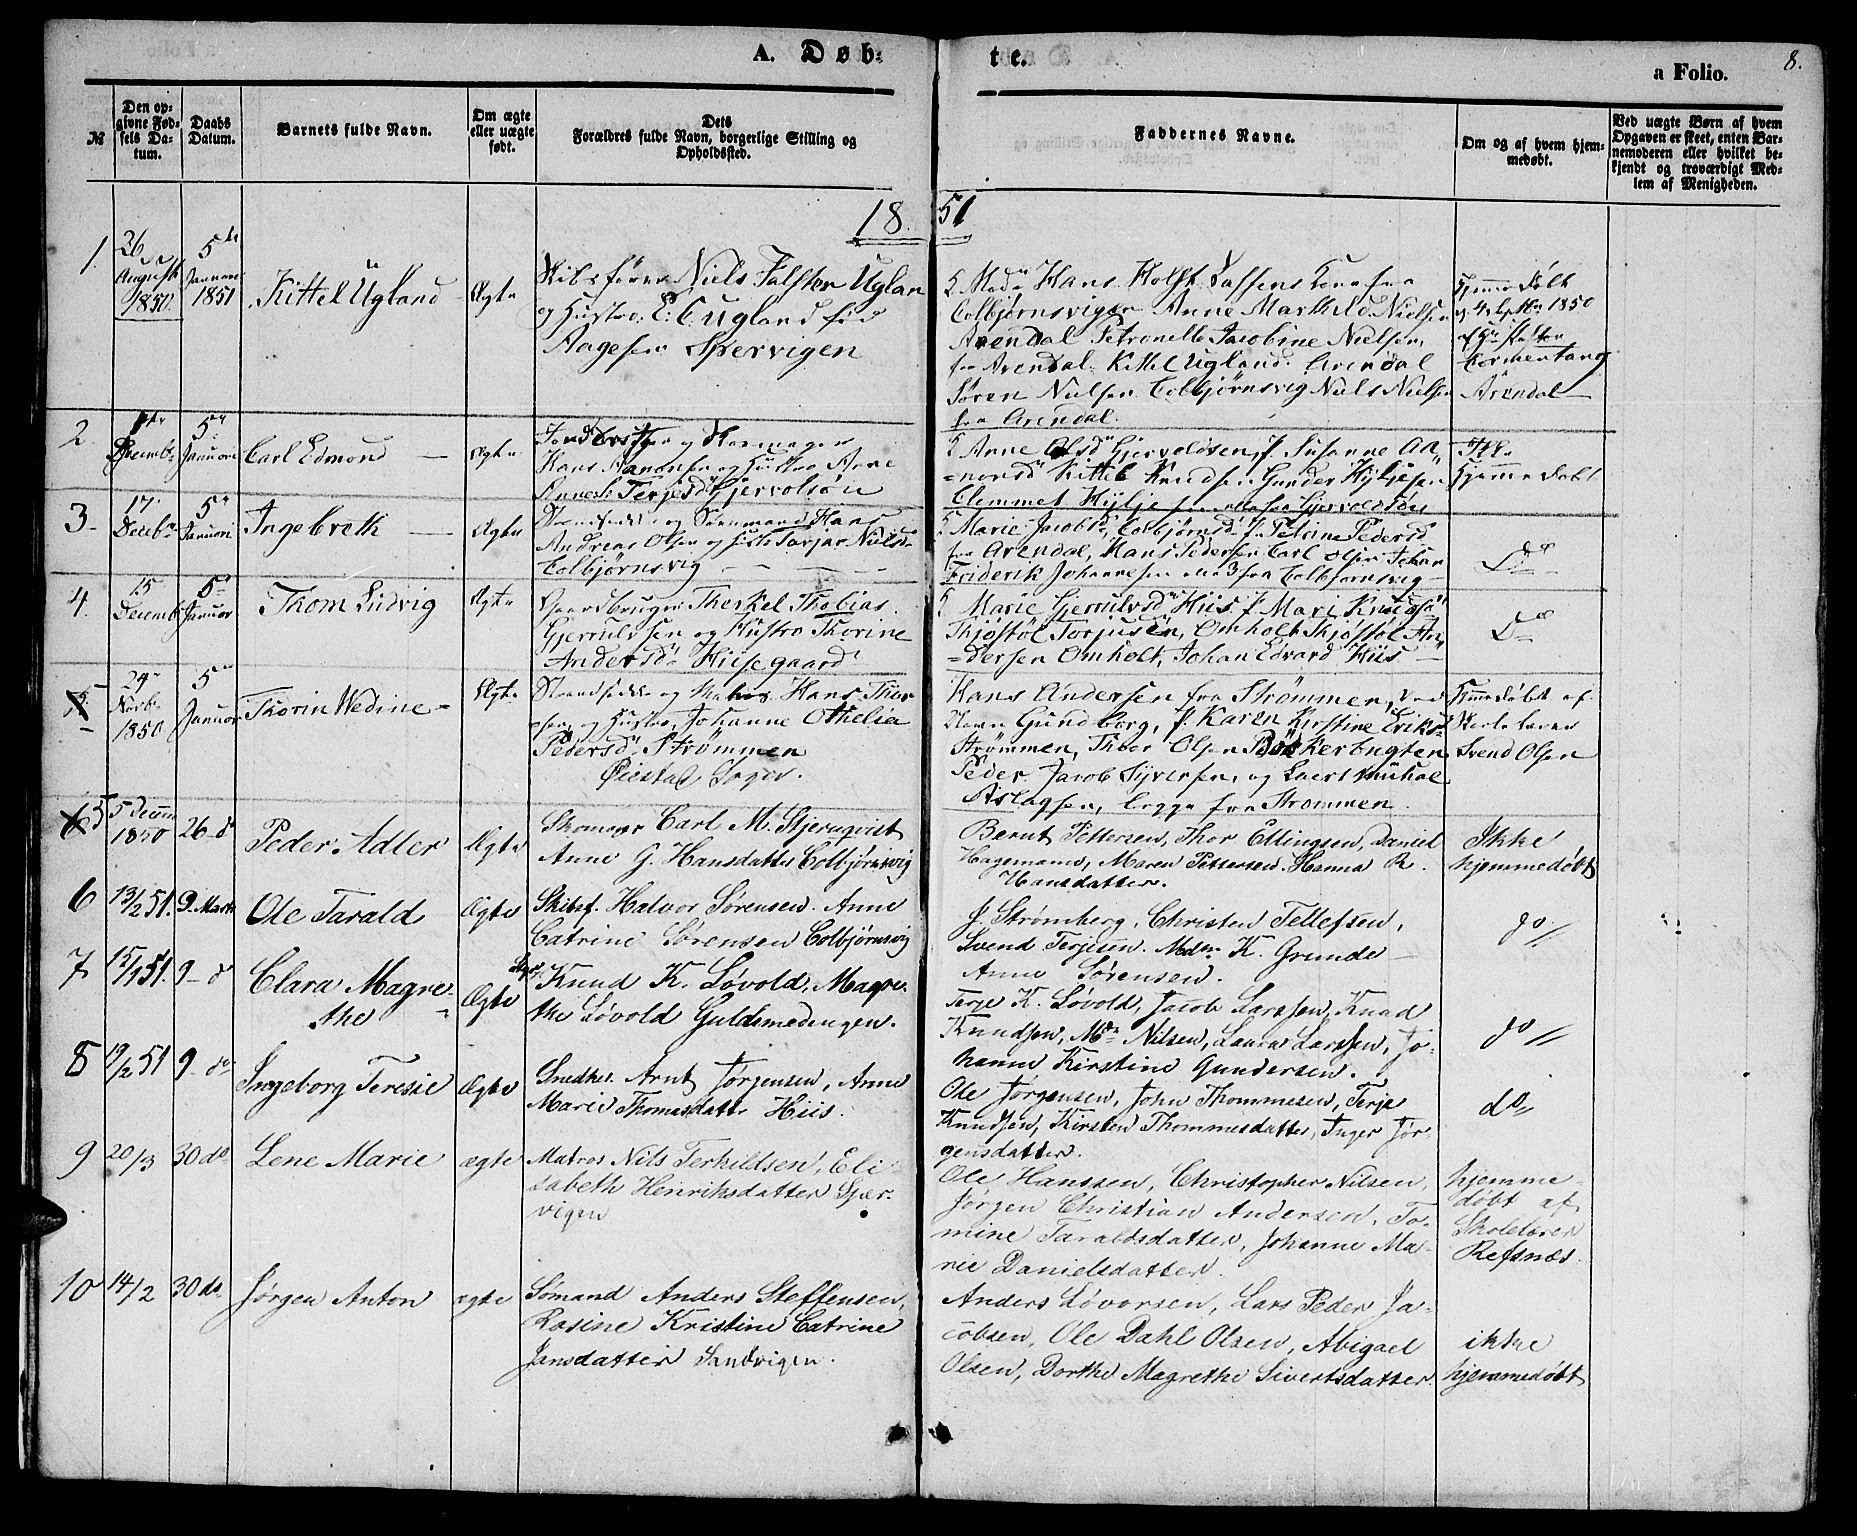 A. Døb-
te.
a Folio.
8.
№
Den op-
givne Fød-
sels Da-
tum.
Daabs
Datum.
Barnets fulde Navn.
Om ægte
eller uægte
født.
Dets
Forældres fulde Navn, borgerlige Stilling og
Opholdssted.
Faddernes Navne.
Om og af hvem hjem-
medøbt.
Ved uægte Børn af hvem
Opgaven er skeet, enten Bar-
nemoderen eller hvilket be-
kjendt og troværdigt Med-
lem af Menigheden.
18 51
1.
26
August
1850.
5te
Januar
1851
Kittel Ugland
Ægte
Skibsfører Niels Falster Uglan
og Hustro E. C. Ugland fød
Aagesen Spervigen
Mad Hans Holst Lassens Kone fra
Colbjørnsvigen Anne Marthild Nielsen
Arendal Petronelle Jacobine Nielsen,
fra Arendal. Kittel Ugland. Arendal
Søren Nielsen Colbjørnsvig Niels Nielsen
fra Arendal.
Hjemmedøbt
1850
Arendal
2.
Decemb
5
Januar
Carl Edmond
Ægte
Hans og Hustro Anne
Terjesd Gjervolsøn
Anne Olsd Gjervoldsøn, J. Susanne Aa-
=norsd Kittel Knudsen Gunder
Clemmet fra Gjervoldsøn
Hjemmedøbt
3-
17
Decb
5
Januari
Ingebreth
Ægte
Strandsidder og Sømand Hans
Andreas Olsen og Tarjer Nielsd
Colbjørnsvig
Marie Jacobsd Colbjørnsv J. Petrine Pedersd
fra Arendal, Hans Pedersen Carl Olsen Johan
Friderik Johannesen alle 3 fra Colbjørnsvig
Do
4.
15
Decemb
5
Januar
Thom Ludvig
Ægte
Gaardbruger Therkel Thobias
Gjerulvsen og Hustro Thorine
Andersd Hiisegaard
Marie Gjerulvsd Hiis. J. Mari Knudsd
Skjøstøl Torjusen, Omholt Skjøstøl An-
=dersen Omholt, Johan Edvard Hiis
Do
5
24
Novb
1850
5
Januar
Thorin Wedine
Ægte
Strandsidder og Matros Hans Thor
sen og Hustro Johanne Othelia
Pedersd Strømmen
Øiestad Sogn.
Hans Andersen fra Strømmen,
Gundborg, J. Karen Kirstine Eriks
Strømmen, Thor Olsen Bøskerbugten
Peder Jacob Syversen, og Lars
Aslagsen, begge fra Strømmen.
Hjemmedøbt af
Skolelærer
Svend Olsen
5
5 Decem
1850
26 do
Peder Adler
Ægte
Skomager Carl M. Stjernqvist
Anne G. Hansdatter Colbjørnsvig
Bernt Pettersen, Thor Ellingsen, Daniel
Hagemann, Maren Pettersen. Hanna R.
Hansdatter.
Ikke
hjemmedøbt
6
13/2 51.
9. Marts
Ole Tarald
Ægte
Skibsf. Halvor Sørensen. Anne
Catrine Sørensen Colbjørnsvig
J. Strømberg, Christen Tellefsen,
Svend Terjesen. Mdm K. Grunde
Anne Sørensen.
do
7
12/1 51.
9- do
Clara Magre-
the
Ægte
Knud K. Løvold, Magre-
the Løvold Guldsmedengen.
Terje K. Løvold, Jacob Larssen, Knud
Knudsen, Md Nilsen, Laura Larssen, Jo-
hanne Kirstine Gundersen.
do
8
19/2 51
9- do
Ingeborg Teresie
Ægte
Snedker. Arnt Jørgensen, Anne
Marie Thomasdatt. Hiis.
Ole Jørgensen, John Thommesen, Terje
Knudsen, Kirsten Thommesdatter, Inger Jør-
gensdatter.
do
9
20/3
30 do
Lene Marie
ægte
Matros Nils Terkildsen, Eli-
sabeth Henriksdatter Spær-
vigen
Ole Hanssen, Christopher Nilsen,
Jørgen Christian Andersen, To-
mine Taraldsdatter, Johanne Ma-
rie Danielsdatter.
hjemme-
døbt af
Skolelærer
Refsnæs.
10
14/2
30 do
Jørgen Anton
ægte
Sømand Anders Steffensen,
Rosine Kristine Catrine
Jansdatter Sandvigen.
Anders Lovorsen, Lars Peder Ja-
cobsen, Ole Dahl Olsen, Abigael
Olsen, Dorthe Magrethe Sivertsdatter.
ikke
hjemmedøbt